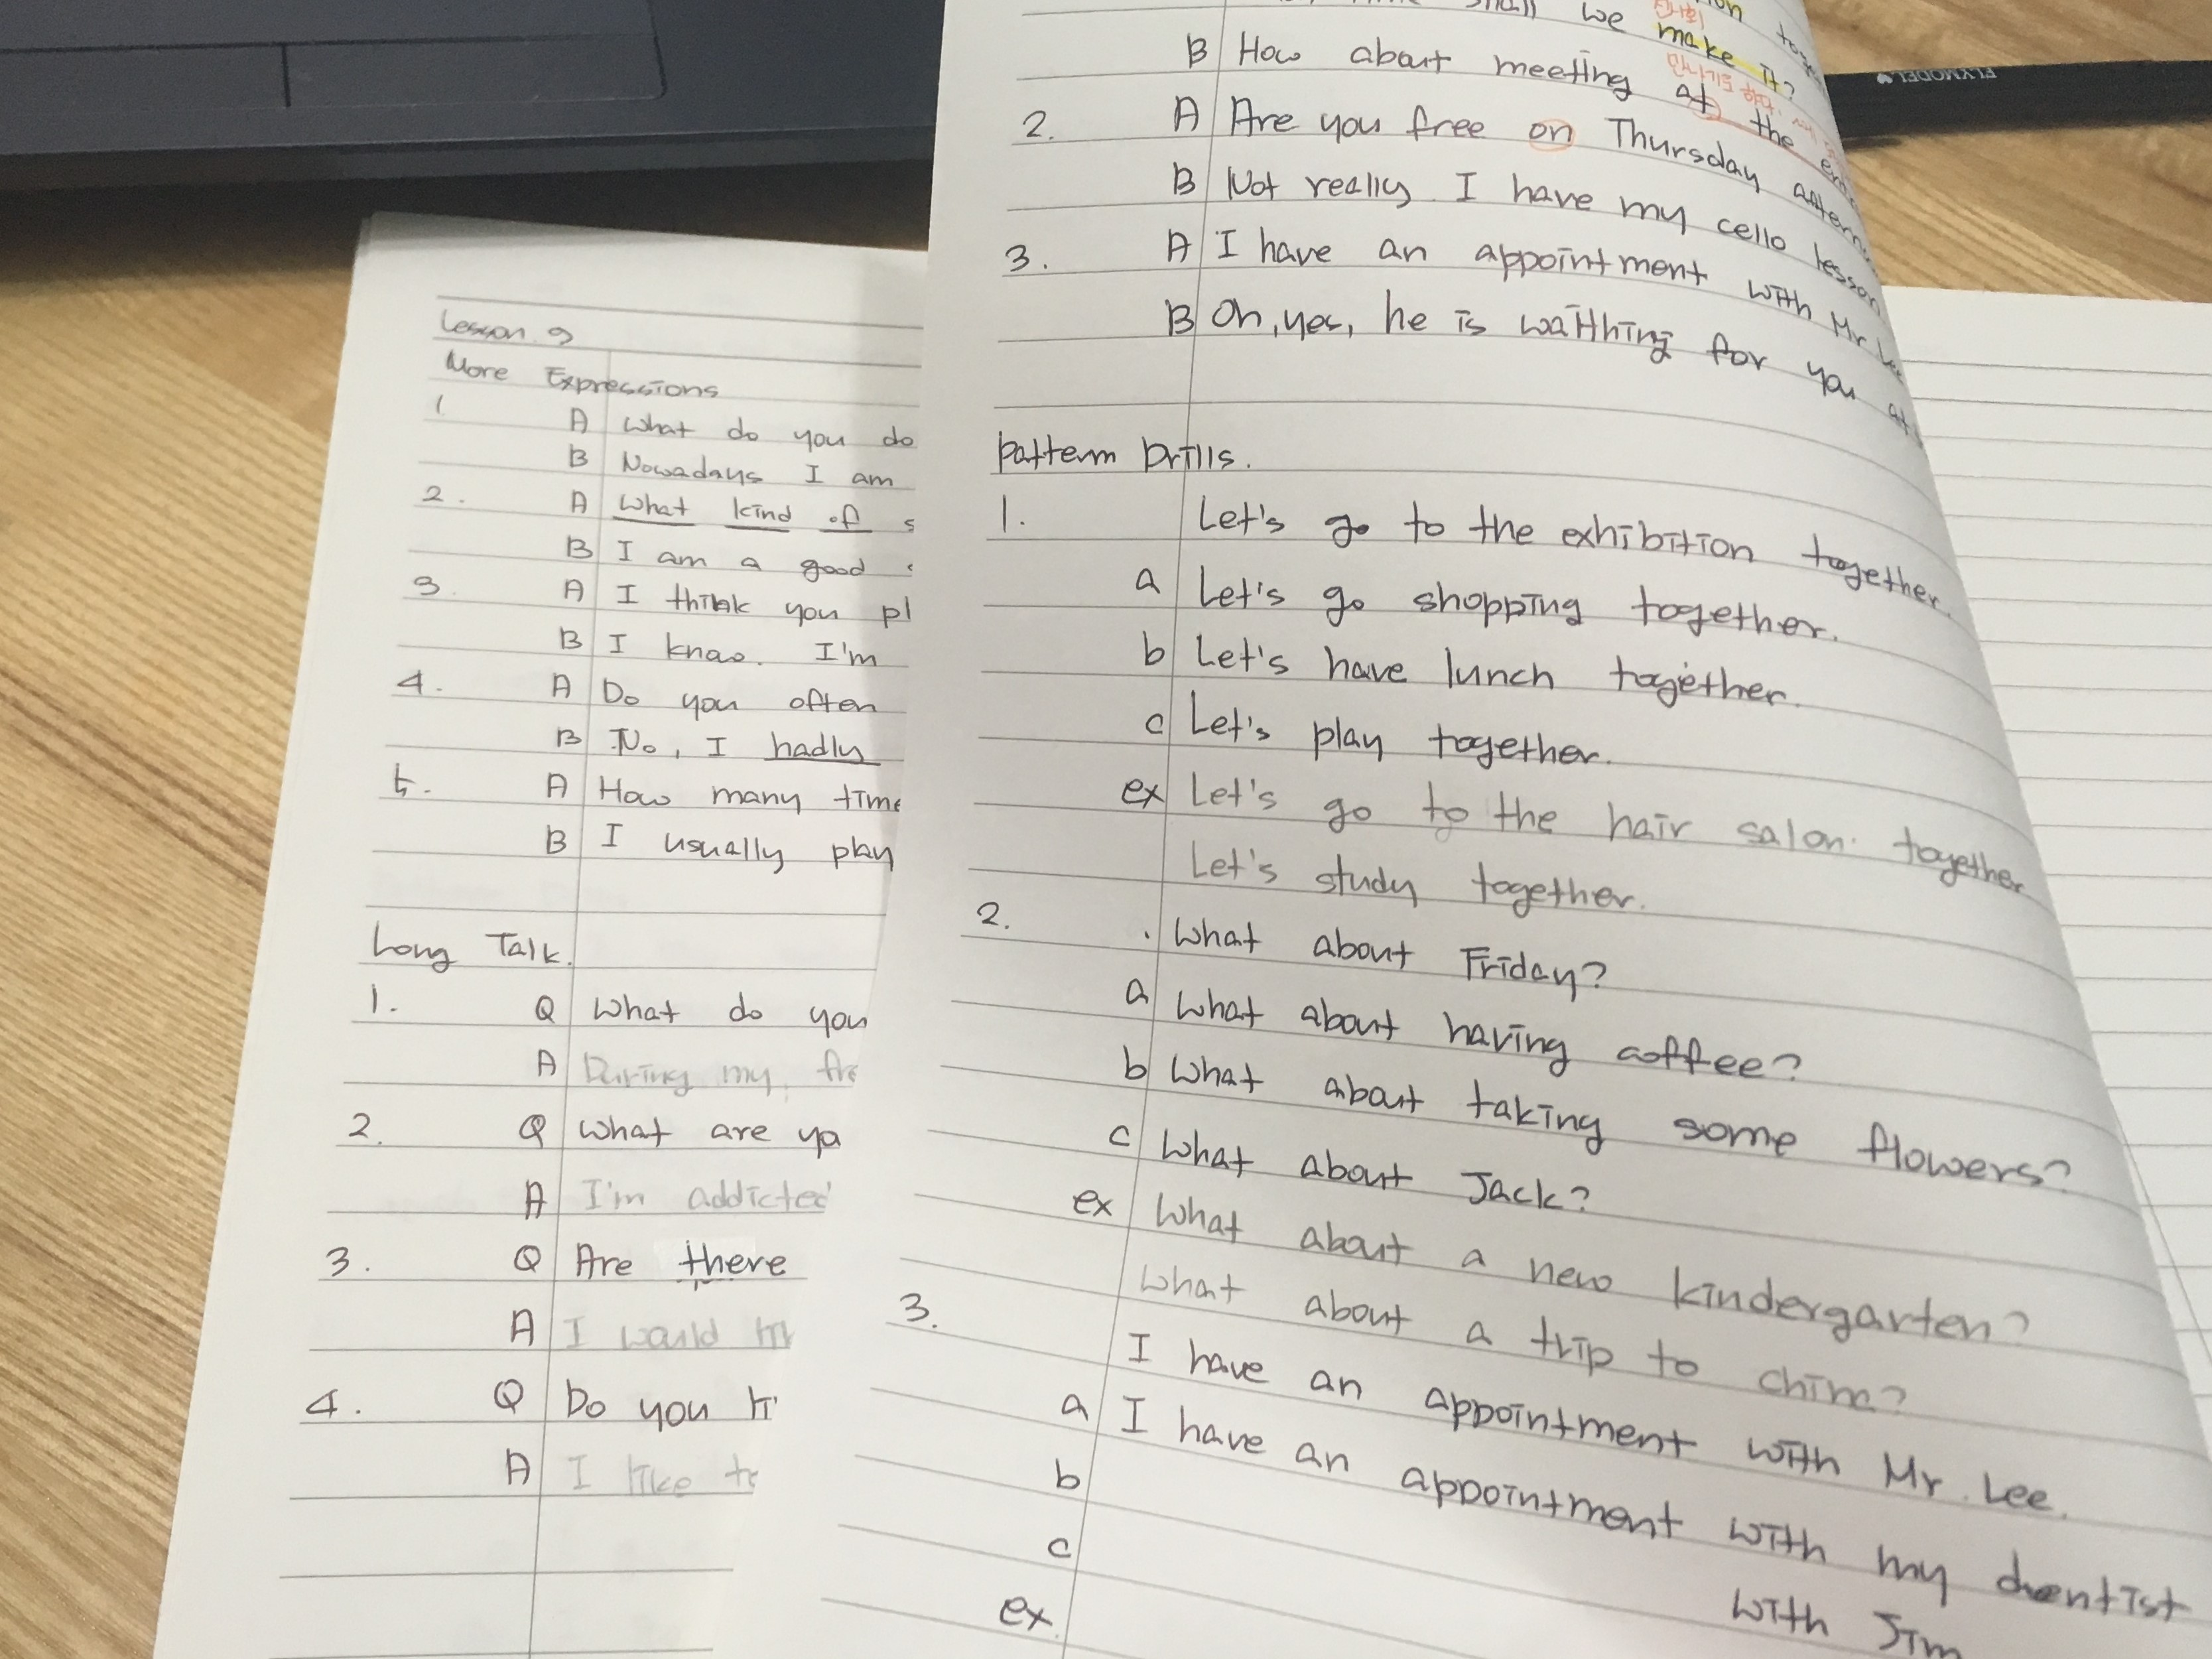 Lesson. 9
More Expressions
1 A What do you do
B Nowadays I am
2. A What kind of s
B I am a good
3. A I think you pl
B I know. I'm
4. A Do you often
B No, I hadly
5. A How many time
B I usually play
Long Talk.
1. Q What do you
A During my fre
2. Q What are yo
A I'm addicted
3. Q Are there
A I would lik
4. Q Do you li
A I like to
shall we make it?
B How about meeting at the
2. A Are you free on Thursday
B Not really I have my cello lesson
3. A I have an appointment with Mr Lee
B Oh, yes, he is waithing for you at
Pattern Drills.
1. Let's go to the exhibition together.
a Let's go shopping together.
b Let's have lunch together.
c Let's play together.
ex Let's go to the hair salon together
Let's study together.
2. What about Friday?
a What about having coffee?
b What about taking some flowers?
c What about Jack?
ex What about a new kindergarten?
What about a trip to
3. I have an appointment with Mr. Lee.
a I have an appointment with my dentist
b with Jim
c
ex.
FLYMODEL